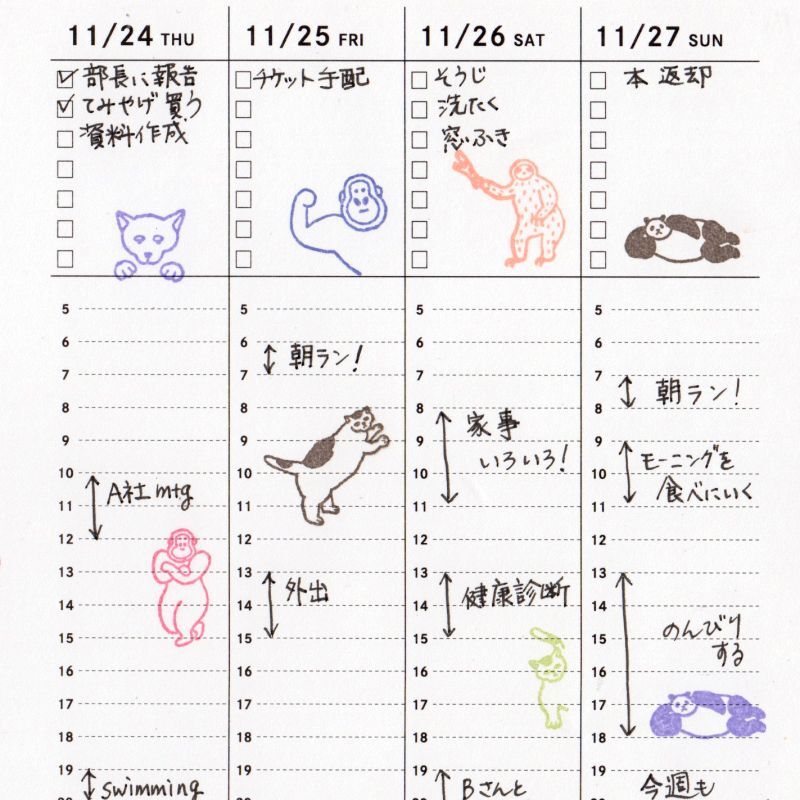 11/24 THU
部長に報告
てみやげ買う
資料作成
5
6
7
8
9
10
A社mtg
11
12
13
14
15
16
17
18
19
swimming
11/25 FRI
チケット手配
5
6
朝ラン!
7
8
9
10
11
12
13
外出
14
15
16
17
18
19
11/26 SAT
そうじ
洗たく
窓ふき
5
6
7
8
家事
9
いろいろ!
10
11
12
13
健康診断
14
15
16
17
18
19
Bさんと
11/27 SUN
本返却
5
6
7
朝ラン!
8
9
モーニングを
10
食べにいく
11
12
13
14
のんびり
15
する
16
17
18
19
今週も